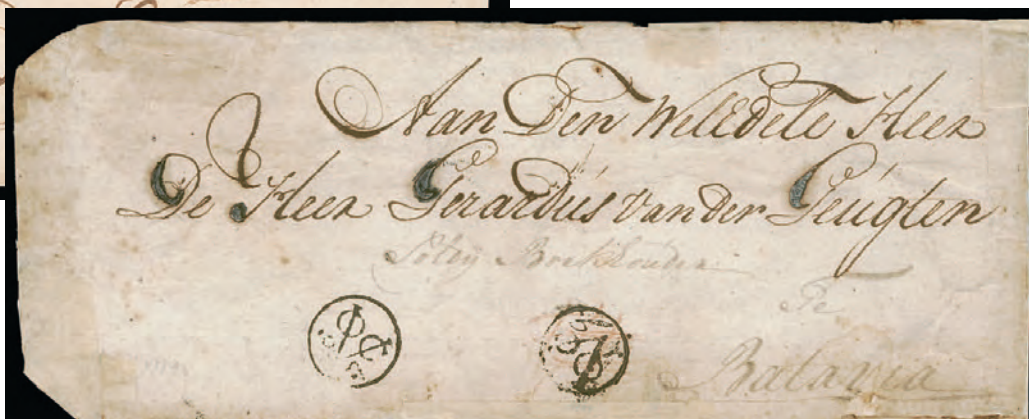 Aan Den WelEdele Heer
De Heer Gerardus van der Geugten
Boekhouder
Te
Batavia